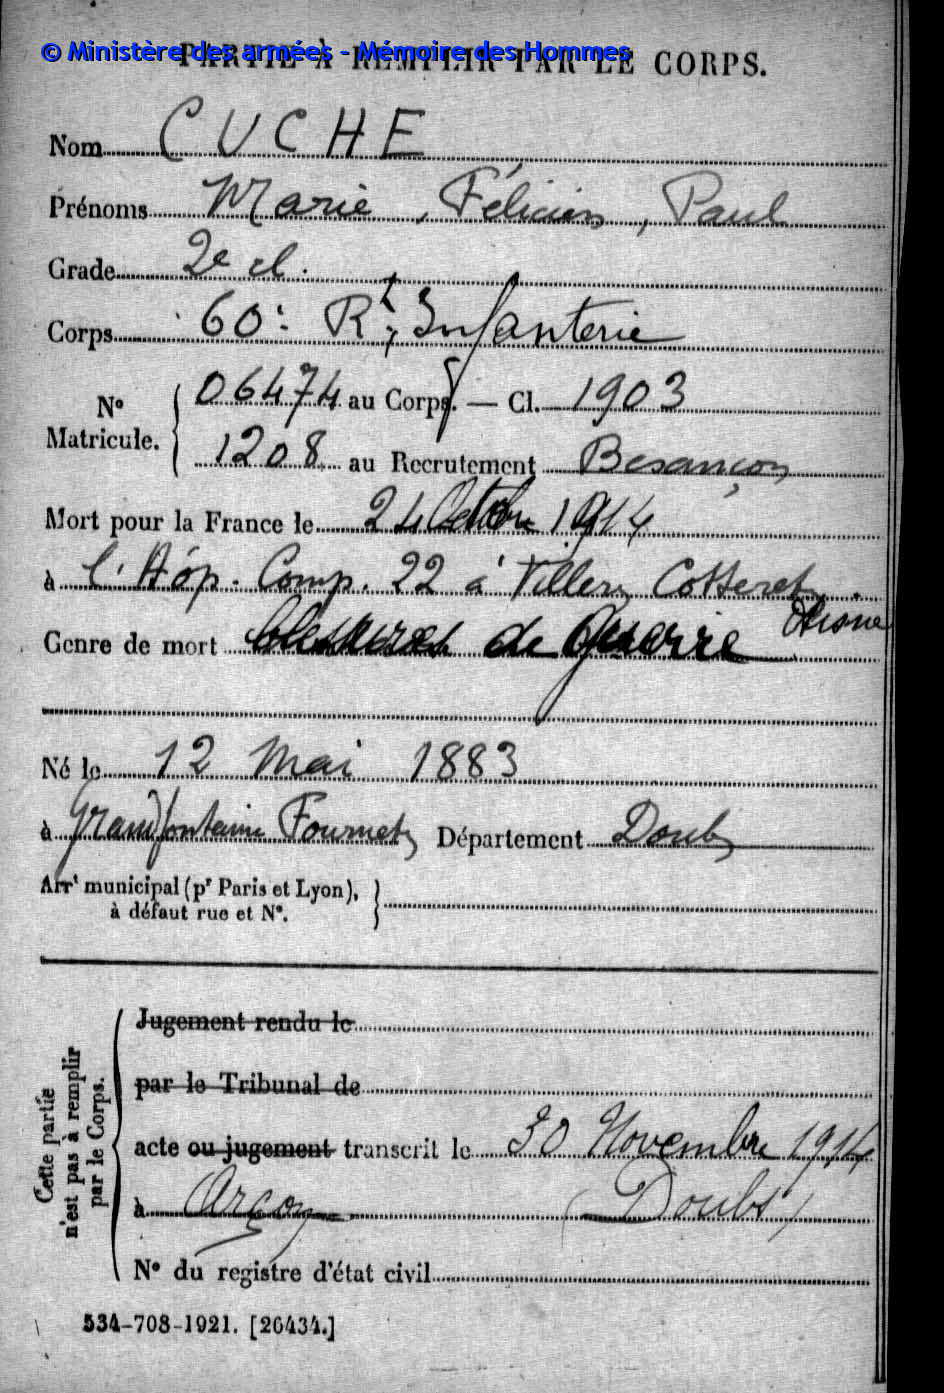 © Ministère des armées - Mémoire des Hommes
PARTIE À REMPLIR PAR LE CORPS.
Nom CUCHE
Prénoms Marie, Félicien, Paul
Grade 2e cl.
Corps 60e Rt Infanterie
N° Matricule. 06474 au Corps. — Cl. 1903
1208 au Recrutement Besançon
Mort pour la France le 24 Octobre 1914
à l'Hôp. Comp. 22 à Villers Cotterets
Aisne
Genre de mort blessures de guerre
Né le 12 Mai 1883
à Grandfontaine Fournets Département Doubs
Arrt municipal (pr Paris et Lyon),
à défaut rue et N°.
Cette partie n'est pas à remplir par le Corps.
Jugement rendu le
par le Tribunal de
acte ou jugement transcrit le 30 Novembre 1914
à Arçon (Doubs)
N° du registre d'état civil
534-708-1921. [26434.]